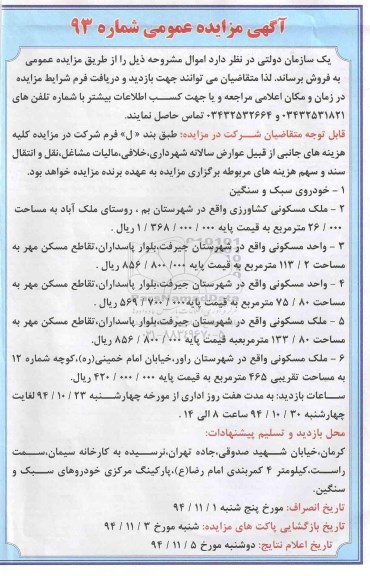 آگهی مزایده عمومی شماره ۹۳
یک سازمان دولتی در نظر دارد اموال مشروحه ذیل را از طریق مزایده عمومی
به فروش برساند. لذا متقاضیان می توانند جهت بازدید و دریافت فرم شرایط مزایده
در زمان و مکان اعلامی مراجعه و یا جهت کسب اطلاعات بیشتر با شماره تلفن های
۰۳۴۳۲۵۳۱۸۲۱ و ۰۳۴۳۲۵۳۲۶۶۴ تماس حاصل نمایند.
قابل توجه متقاضیان شرکت در مزایده: طبق بند « ل» فرم شرکت در مزایده کلیه
هزینه های جانبی از قبیل عوارض سالانه شهرداری،خلافی،مالیات مشاغل،نقل و انتقال
سند و سهم هزینه های مربوطه برگزاری مزایده به عهده برنده مزایده خواهد بود.
۱ - خودروی سبک و سنگین
۲ - ملک مسکونی کشاورزی واقع در شهرستان بم ، روستای ملک آباد به مساحت
۰۰۰ / ۲۶ مترمربع به قیمت پایه ۰۰۰ / ۰۰۰ / ۳۶۸ / ۱ ریال .
۳ - واحد مسکونی واقع در شهرستان جیرفت،بلوار پاسداران،تقاطع مسکن مهر به
مساحت ۲ / ۱۱۳ مترمربع به قیمت پایه ۰۰۰/ ۸۰۰ / ۸۵۶ ریال .
۴ - واحد مسکونی واقع در شهرستان جیرفت،بلوار پاسداران،تقاطع مسکن مهر به
مساحت ۸۰ / ۷۵ مترمربع به قیمت پایه ۰۰۰ / ۷۰۰ / ۵۶۹ ریال .
۵ - ملک مسکونی واقع در شهرستان جیرفت،بلوار پاسداران،تقاطع مسکن مهر به
مساحت ۸۰ / ۱۳۳ مترمربعبه قیمت پایه ۰۰۰ / ۸۰۰ / ۸۵۶ ریال.
۶ - ملک مسکونی واقع در شهرستان راور،خیابان امام خمینی(ره)،کوچه شماره ۱۲
به مساحت تقریبی ۴۶۵ مترمربع به قیمت پایه ۰۰۰ / ۰۰۰ / ۴۲۰ ریال.
ساعات بازدید: به مدت هفت روز اداری از مورخه چهارشنبه ۲۳ / ۱۰ / ۹۴ لغایت
چهارشنبه ۳۰ / ۱۰ / ۹۴ ساعت ۸ الی ۱۴ .
محل بازدید و تسلیم پیشنهادات:
کرمان،خیابان شهید صدوقی،جاده تهران،نرسیده به کارخانه سیمان،سمت
راست،کیلومتر ۴ کمربندی امام رضا(ع)،پارکینگ مرکزی خودروهای سبک و
سنگین.
تاریخ انصراف: مورخ پنج شنبه ۱ / ۱۱ / ۹۴
تاریخ بازگشایی پاکت های مزایده: شنبه مورخ ۳ / ۱۱ / ۹۴
تاریخ اعلام نتایج: دوشنبه مورخ ۵ / ۱۱ / ۹۴